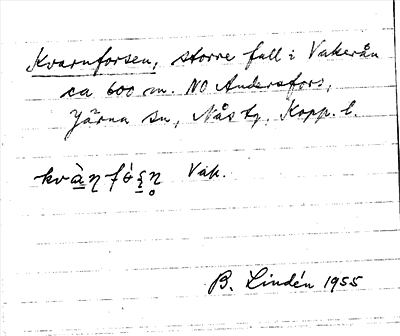 Kvarnforsen, större fall i Vakerån
ca 600 m. NO Andersfors,
Järna sn, Nås tg. Kopp. l.
Vak.
B. Lindén 1955